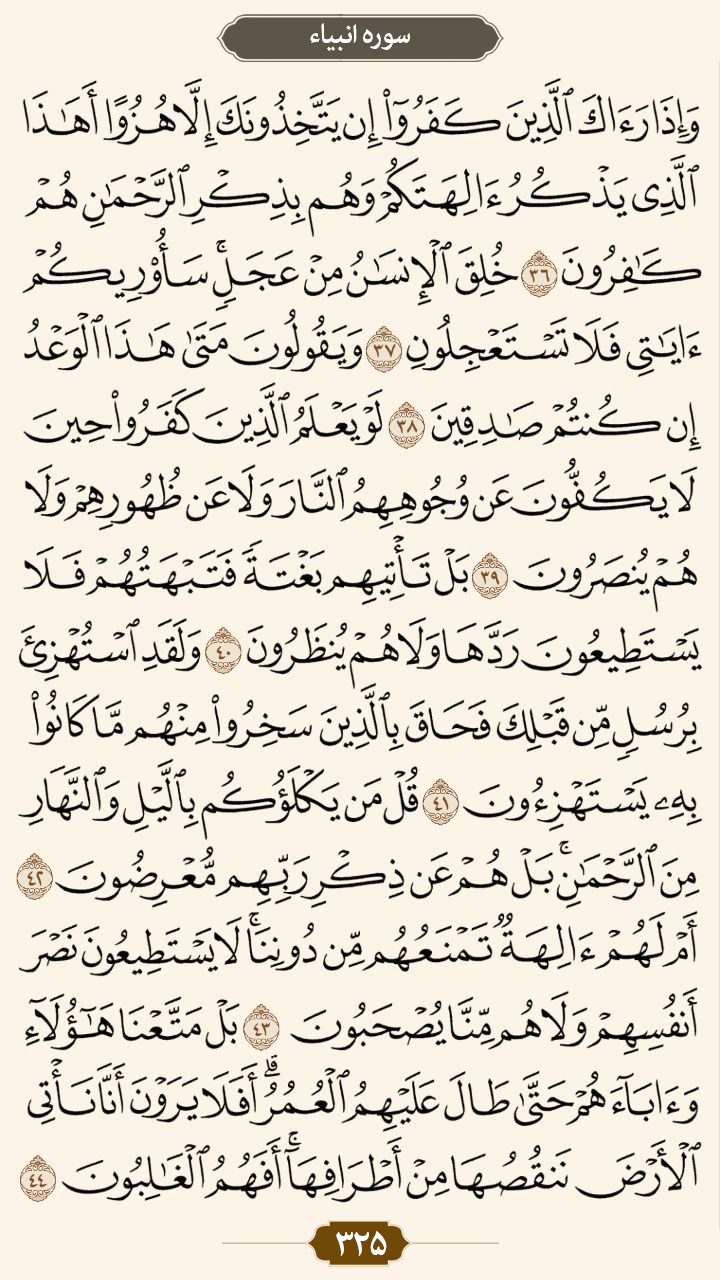 سوره انبیاء
وَإِذَا رَءَاكَ ٱلَّذِينَ كَفَرُوٓا۟ إِن يَتَّخِذُونَكَ إِلَّا هُزُوًا أَهَـٰذَا
ٱلَّذِى يَذْكُرُ ءَالِهَتَكُمْ وَهُم بِذِكْرِ ٱلرَّحْمَـٰنِ هُمْ
كَـٰفِرُونَ ٣٦ خُلِقَ ٱلْإِنسَـٰنُ مِنْ عَجَلٍۚ سَأُو۟رِيكُمْ
ءَايَـٰتِى فَلَا تَسْتَعْجِلُونِ ٣٧ وَيَقُولُونَ مَتَىٰ هَـٰذَا ٱلْوَعْدُ
إِن كُنتُمْ صَـٰدِقِينَ ٣٨ لَوْ يَعْلَمُ ٱلَّذِينَ كَفَرُوا۟ حِينَ
لَا يَكُفُّونَ عَن وُجُوهِهِمُ ٱلنَّارَ وَلَا عَن ظُهُورِهِمْ وَلَا
هُمْ يُنصَرُونَ ٣٩ بَلْ تَأْتِيهِم بَغْتَةً فَتَبْهَتُهُمْ فَلَا
يَسْتَطِيعُونَ رَدَّهَا وَلَا هُمْ يُنظَرُونَ ٤٠ وَلَقَدِ ٱسْتُهْزِئَ
بِرُسُلٍ مِّن قَبْلِكَ فَحَاقَ بِٱلَّذِينَ سَخِرُوا۟ مِنْهُم مَّا كَانُوا۟
بِهِۦ يَسْتَهْزِءُونَ ٤١ قُلْ مَن يَكْلَؤُكُم بِٱلَّيْلِ وَٱلنَّهَارِ
مِنَ ٱلرَّحْمَـٰنِۚ بَلْ هُمْ عَن ذِكْرِ رَبِّهِم مُّعْرِضُونَ ٤٢
أَمْ لَهُمْ ءَالِهَةٌ تَمْنَعُهُم مِّن دُونِنَاۚ لَا يَسْتَطِيعُونَ نَصْرَ
أَنفُسِهِمْ وَلَا هُم مِّنَّا يُصْحَبُونَ ٤٣ بَلْ مَتَّعْنَا هَـٰٓؤُلَآءِ
وَءَابَآءَهُمْ حَتَّىٰ طَالَ عَلَيْهِمُ ٱلْعُمُرُۗ أَفَلَا يَرَوْنَ أَنَّا نَأْتِى
ٱلْأَرْضَ نَنقُصُهَا مِنْ أَطْرَافِهَآۚ أَفَهُمُ ٱلْغَـٰلِبُونَ ٤٤
۳۲۵